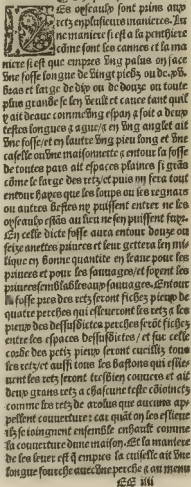 Les oyseaulx sont prins aux
retz en plusieurs manieres. Lu
ne maniere si est a la penthiere
côme sont les cannes et la ma
niere si est que empres ung palus on face
une fosse longue de vingt piedz ou de
bras et large de dix ou de douze ou toute
plus grande se len veult et cauee tant quil
y ait deaue comme ung espan
testes longues a ague/a en ung anglet ait
une fosse/et en lautre ung pieu long et une
caselle ou une maisonnette a entour la fosse
de toutes pars ait espaces plaines si grâs
côme le large des retz/et puis on fera tout
entour hayes que les loups ou les regnars
ou autres bestes ny puissent entrer ne les
oyseaulx estâs au lieu ne sen puissent fuyr.
En celle dicte fosse aura entour douze ou
seize anettes priuees et leur gettera len mi
lique en bonne quantite en leaue pour les
priuees et pour les sauuages/et soyent les
priuees semblables aux sauuages. Entour
la fosse pres des retz seront fichez pieux de
quatre perches qui eslieueront les retz a les
pieux des dessusdictes perches serôt fichez
entre les espaces dessusdictes/et sur celle
corde des petiz pieux seront cueilliz tous
les retz/et aussi tous les bastons qui eslie
uent les retz seront tresbien couuers et ait
deux grans retz a chascune teste côioinctz
comme les retz de arolus que aucuns ap
pellent couuerture: car quât on les eslieue
ilz se ioingnent ensemble enhault comme
la couuerture dune maison. Et la maniere
de les leuer est que empres la casselle ait une
longue fourche auec une perche a au menu
EE iiii